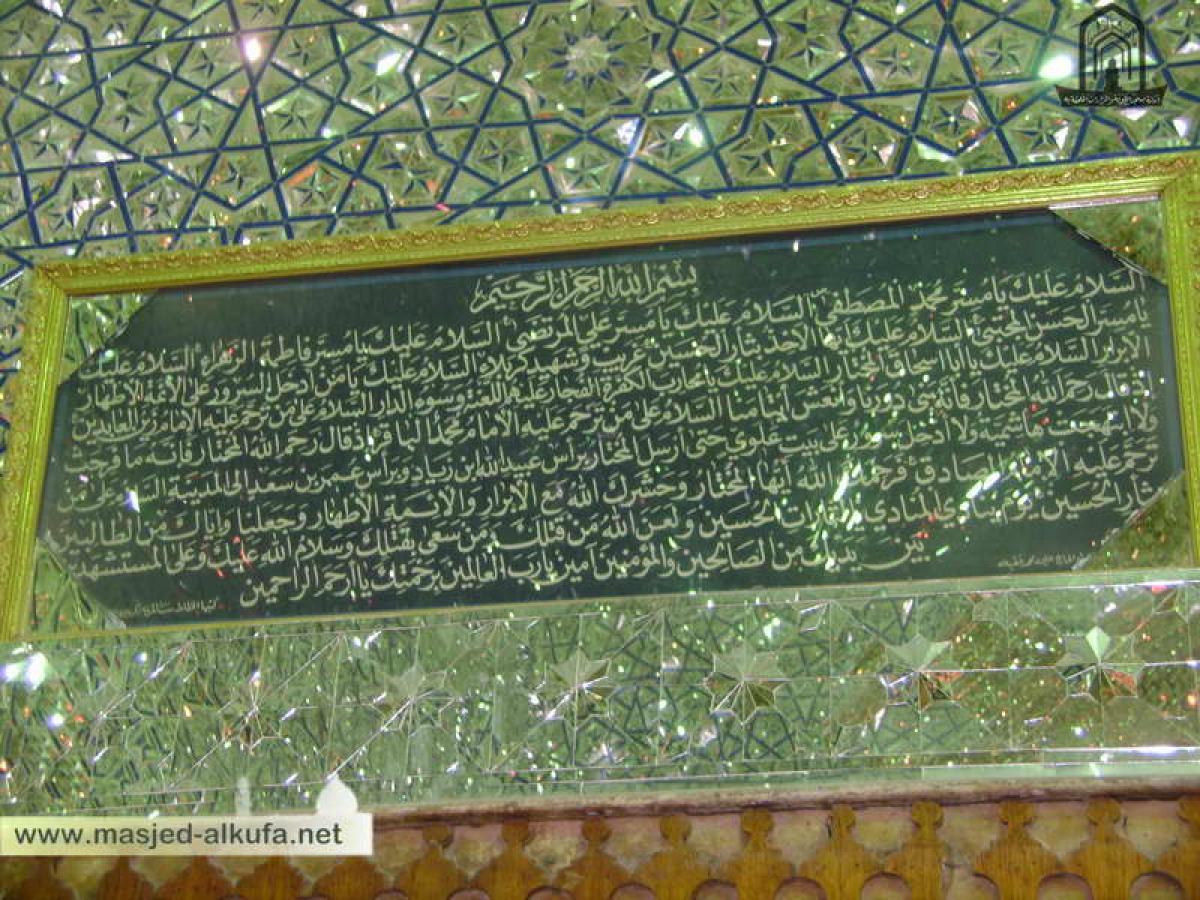 بسم الله الرحمن الرحيم
السلام عليك يا مسر محمد المصطفى السلام عليك يا مسر علي المرتضى السلام عليك يا مسر فاطمة الزهراء السلام عليك
يا مسر الحسن المجتبى السلام عليك ايها الآخذ بثار الحسين غريب وشهيد كربلاء السلام عليك يا من ادخل السرور على الأئمة الأطهار
الابرار السلام عليك يا أبا اسحاق المختار السلام عليك يا محارب الكفرة الفجار عليهم اللعنة وسوء الدار السلام على من ترحم عليه الامام زين العابدين
قال رحم الله المختار فانه بنى دورنا السلام على من ترحم عليه الامام محمد الباقر اذ قال رحم الله المختار فانه ما
ولا ولا أدخل سرور على بيت علوي حتى أرسل المختار برأس عبيد الله ابن زياد وبرأس عمر بن سعد الى المدينة السلام على من
ترحم عليه الامام الصادق فرحمك الله أيها المختار وحشرك الله مع الأبرار والأئمة الأطهار وجعلنا واياك من الطالبين
بثار الحسين يوم ينادي المنادي يا لثارات الحسين ولعن الله من قتلك ومن سعى بقتلك وسلام الله عليك وعلى المستشهدين
بين يديك من الصالحين والمؤمنين آمين يا رب العالمين برحمتك يا ارحم الراحمين
www.masjed-alkufa.net